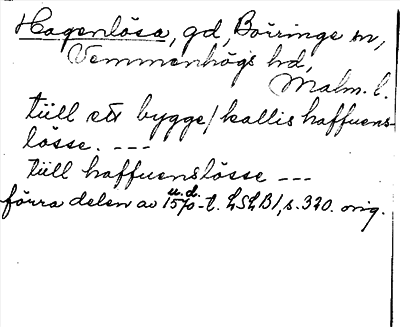 Hagenlösa, gd, Börringe sn,
Vemmenhögs hd,
Malm. l.
tüll ett bygge / kallis haffuens-
lösse. ---
tüll haffuenslösse ---
u.d.
förra delen av 1570-t. LSLB1, s. 320. orig.